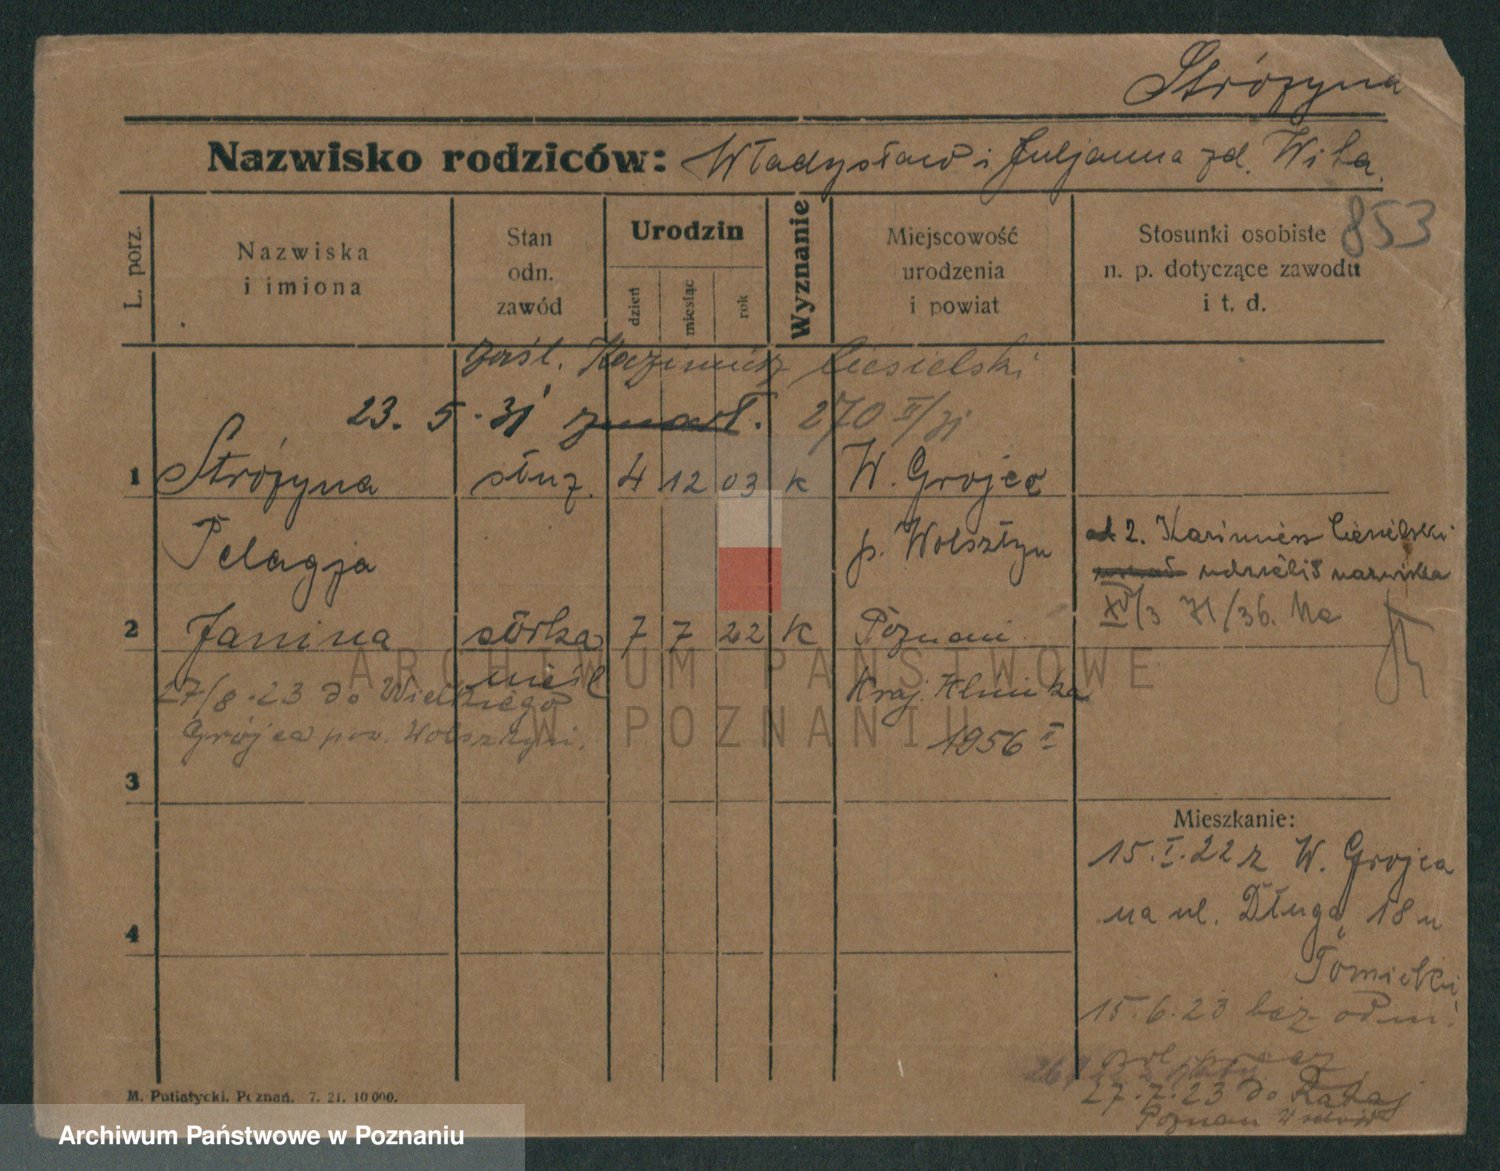 Stróżyna
Nazwisko rodziców: Władysław i Juljanna zd. Wita.
853
L. porz.
Nazwiska
i imiona
Stan
odn.
zawód
Urodzin
dzień
miesiąc
rok
Wyznanie
Miejscowość
urodzenia
i powiat
Stosunki osobiste
n. p. dotyczące zawodu
i t. d.
zaśl. Kazimierz Ciesielski
23. 5. 31 zmarł. 270 II/31
1 Stróżyna służ. 4 12 03 K W. Grojec
Pelagja p. Wolsztyn
ad 2. Kazimierz Ciesielski
udzielił nazwiska
XV/3 71/36.
2 Janina córka 7 7 22 K Poznań
nieśl Kraj Klinika
27/8.23 do Wielkiego
Grójca pow. Wolsztyn.
1956 II
3
Mieszkanie:
15.I.22 z W. Grojca
na ul. Długą 18 u
Tomicki
4
15.6.23 bez odm.
27.7.23 do Rataj
Poznań
M. Putiatycki. Poznań. 7. 21. 10 000.
ARCHIWUM PAŃSTWOWE
W POZNANIU
Archiwum Państwowe w Poznaniu